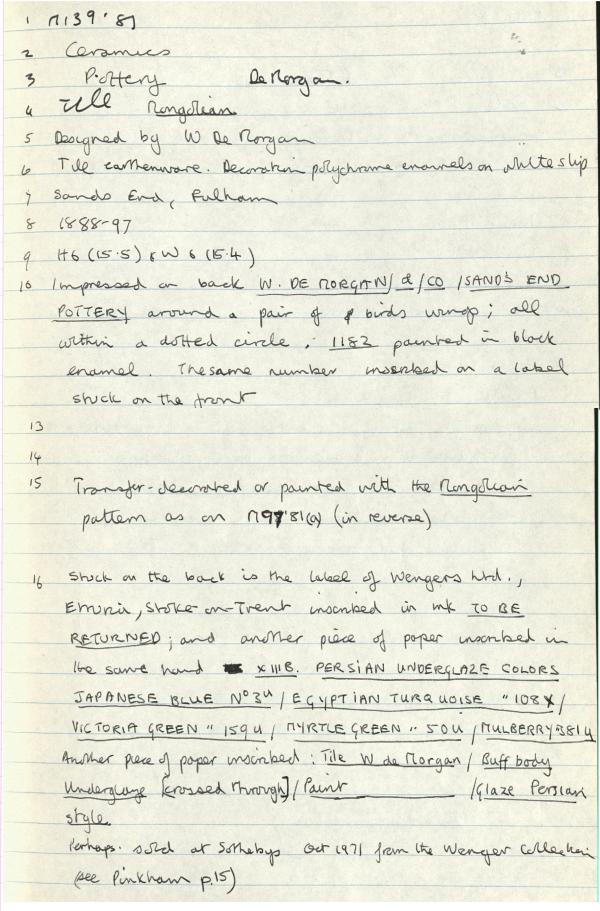 1 M139'81
2 Ceramics
3 Pottery De Morgan.
4 Tile Mongolian
5 Designed by W De Morgan
6 Tile earthenware. Decoration polychrome enamels on white slip
7 Sands End, Fulham
8 1888-97
9 H6 (15.5) W 6 (15.4)
10 Impressed on back W. DE MORGAN/ & /CO /SANDS END
POTTERY around a pair of birds wings; all
within a dotted circle. 1182 painted in black
enamel. The same number inscribed on a label
stuck on the front
13
14
15 Transfer-decorated or painted with the Mongolian
pattern as on M97'81(a) (in reverse)
16 Stuck on the back is the label of Wengers Ltd.,
Etruria, Stoke-on-Trent inscribed in ink TO BE
RETURNED; and another piece of paper inscribed in
the same hand XIIIB. PERSIAN UNDERGLAZE COLORS
JAPANESE BLUE No 3u / EGYPTIAN TURQUOISE " 108X/
VICTORIA GREEN " 159u / MYRTLE GREEN " 50u / MULBERRY 381u
Another piece of paper inscribed: Tile W de Morgan / Buff body
Underglaze [crossed through] / Paint /Glaze Persian
style.
Perhaps sold at Sothebys Oct 1971 from the Wenger Collection
(see Pinkham p.15)